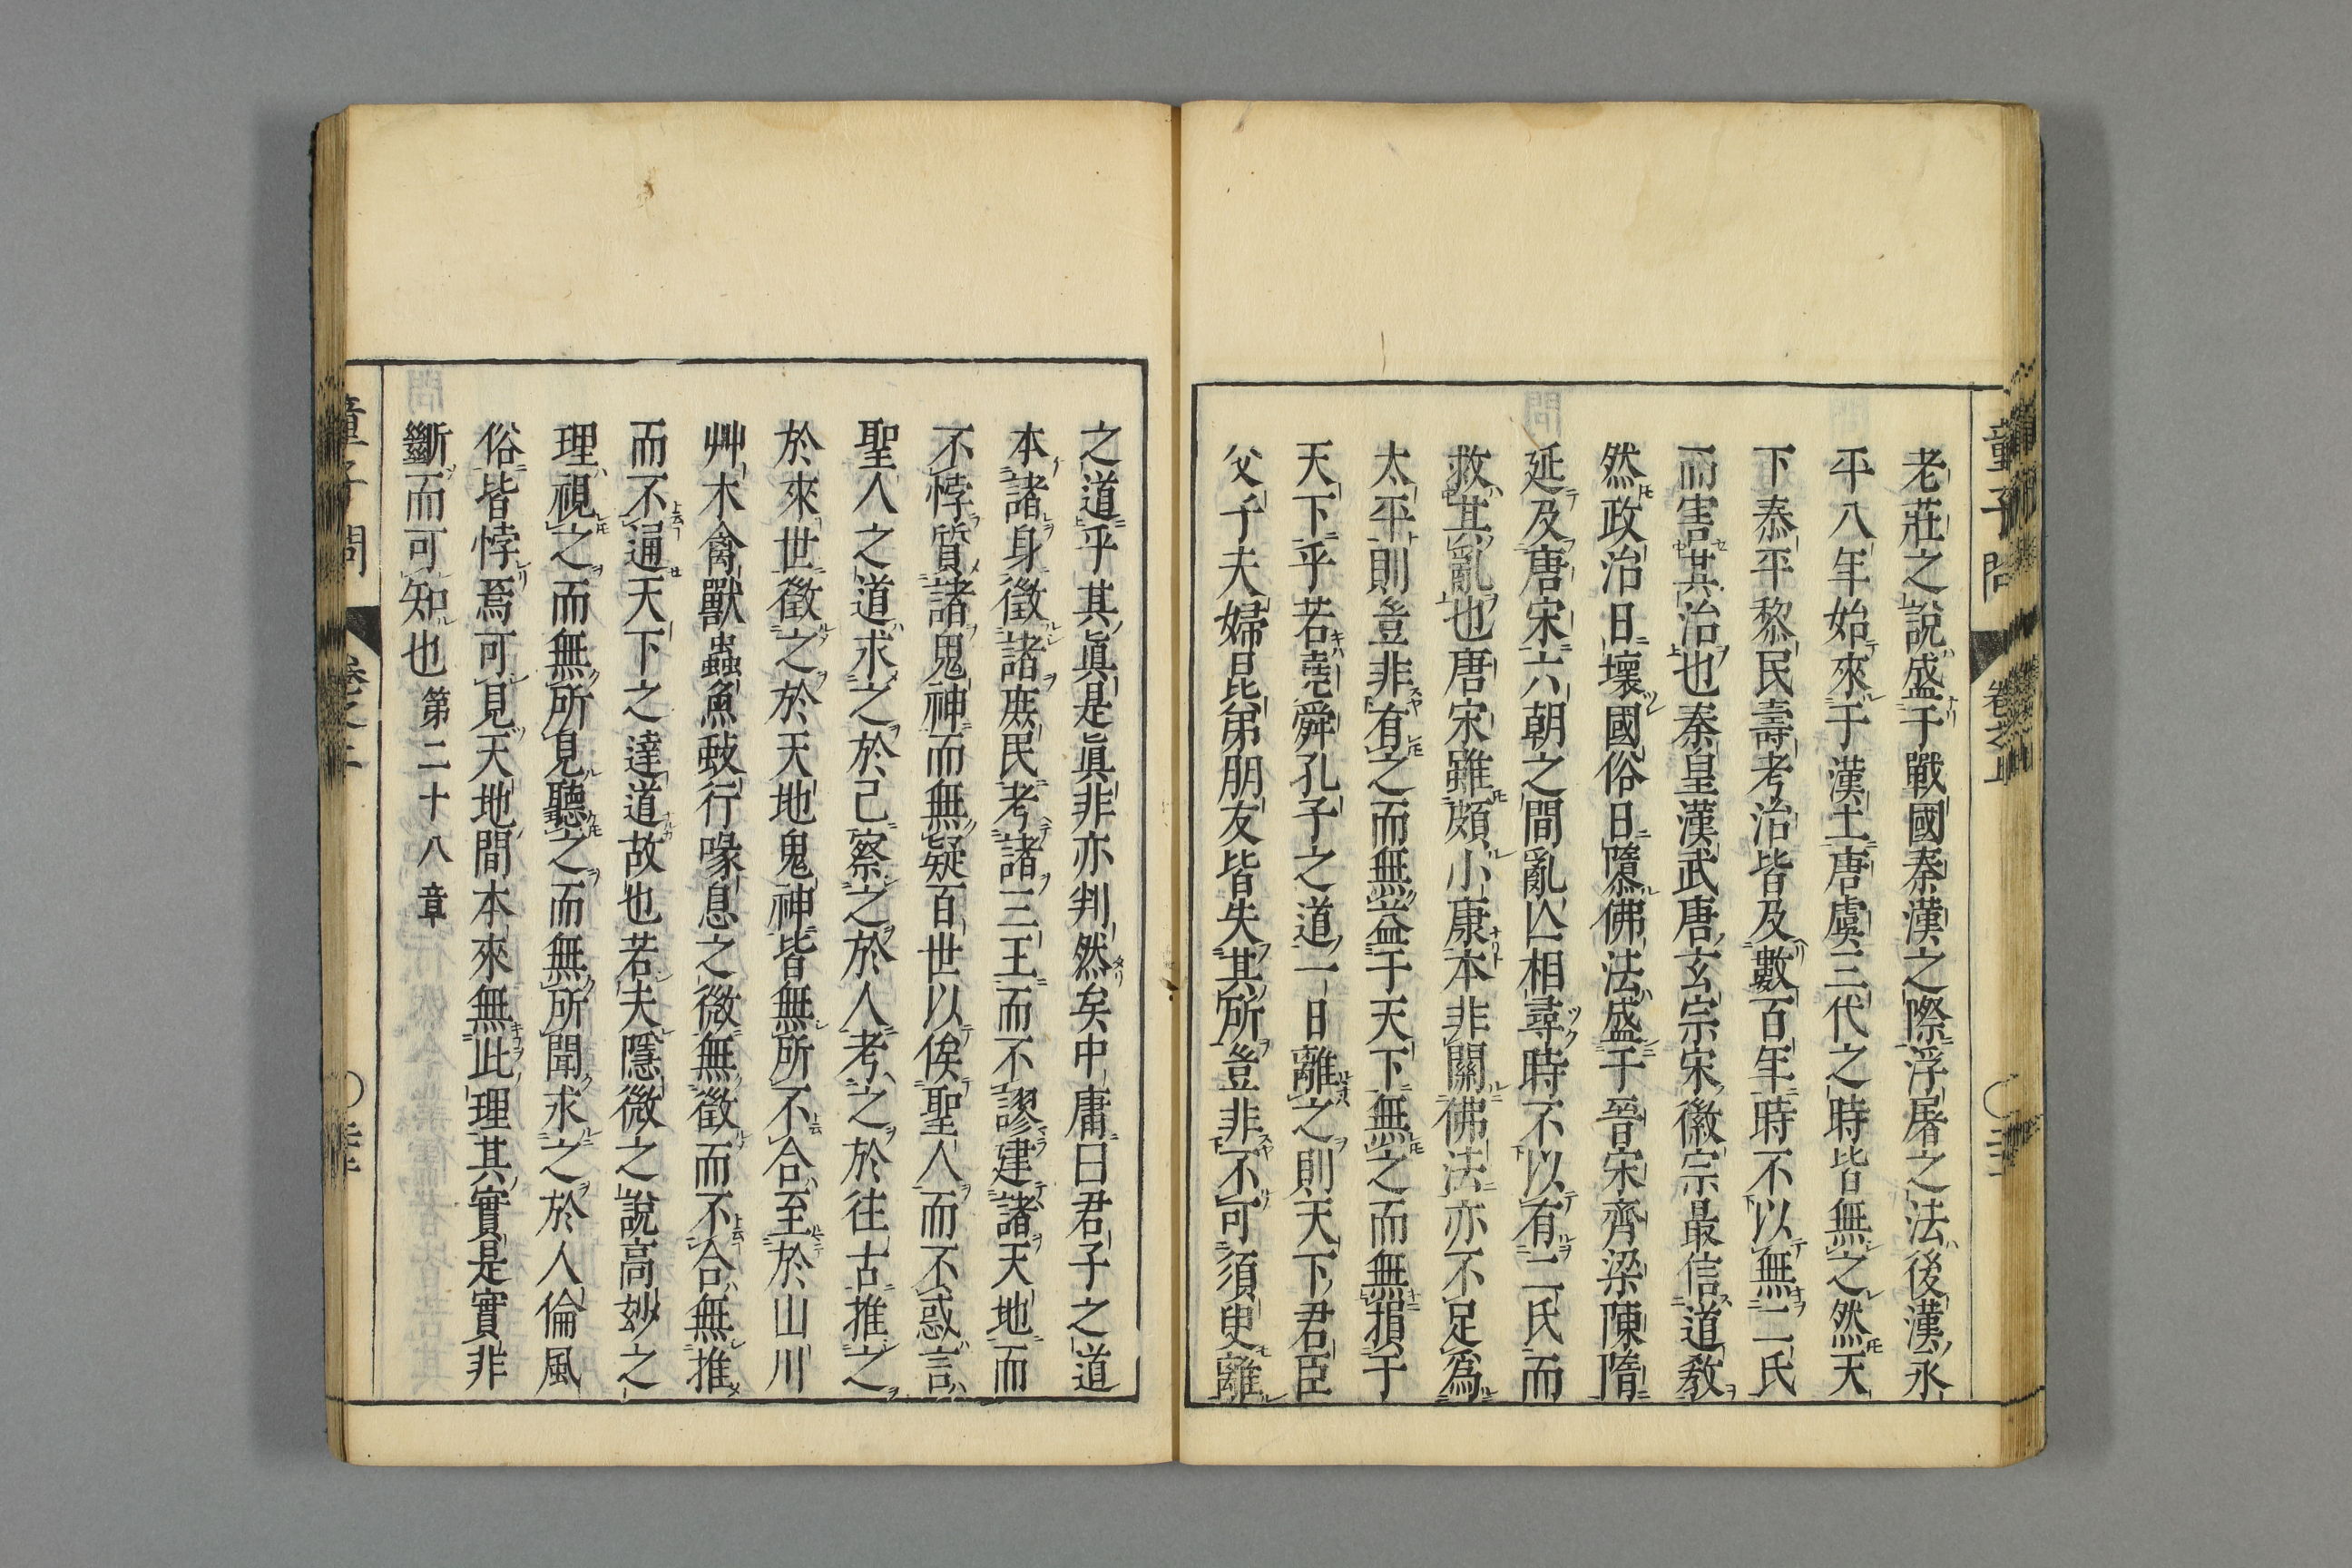 老莊之說盛于戰國秦漢之際浮屠之法後漢永
平八年始來于漢土唐虞三代之時皆無之然天
下泰平黎民壽考治皆及數百年時不以無二氏
而害其治也秦皇漢武唐玄宗宋徽宗最信道教
然政治日壞國俗日隳佛法盛于晉宋齊梁陳隋
延及唐宋六朝之間亂亾相尋時不以有二氏而
救其亂也唐宋雖頗小康本非關佛法亦不足爲
太平則豈非有之而無益于天下無之而無損于
天下乎若堯舜孔子之道一日離之則天下君臣
父子夫婦昆弟朋友皆失其所豈非不可須臾離
之道乎其眞是眞非亦判然矣中庸曰君子之道
本諸身徵諸庶民考諸三王而不謬建諸天地而
不悖質諸鬼神而無疑百世以俟聖人而不惑言
聖人之道求之於己察之於人考之於往古推之
於來世徵之於天地鬼神皆無所不合至於山川
艸木禽獸蟲魚蚑行喙息之微無徵而不合無推
而不通天下之達道故也若夫隱微之說高妙之
理視之而無所見聽之而無所聞求之於人倫風
俗皆悖焉可見天地間本來無此理其實是實非
斷而可知也 第二十八章
童子問